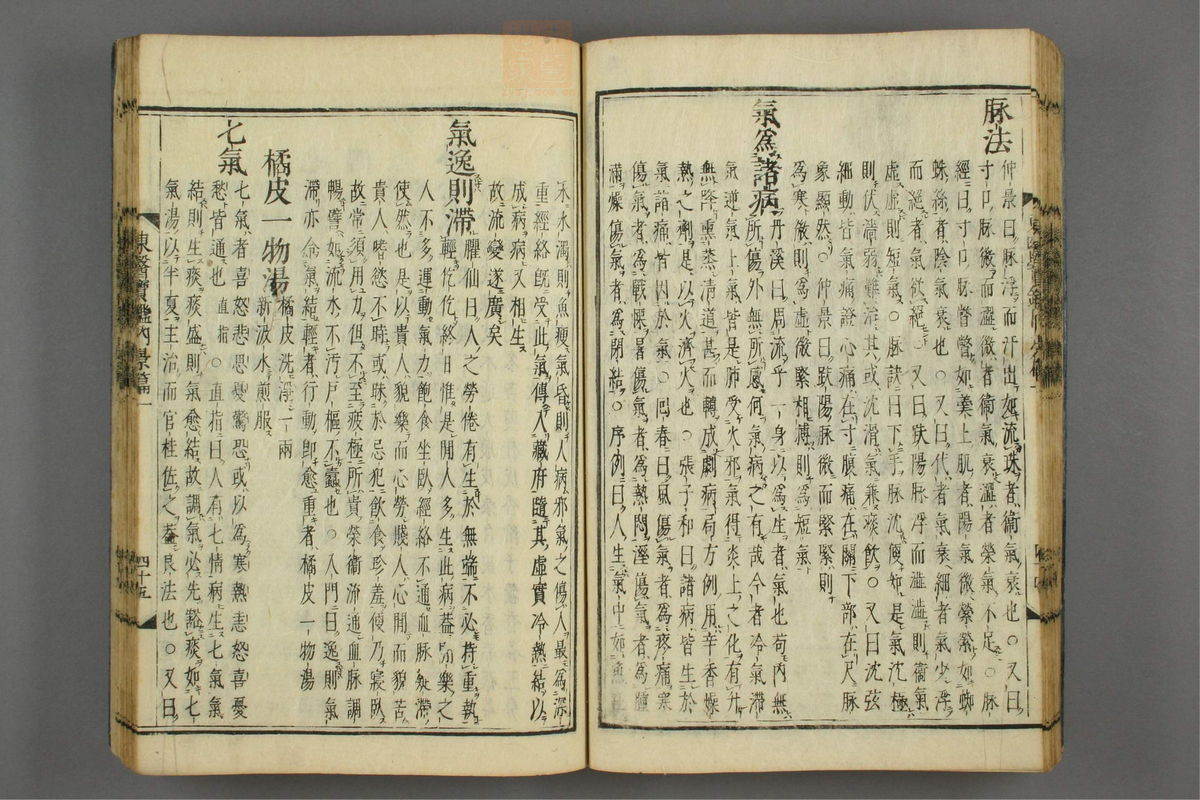 脉法
仲景曰脉浮而汗出如流珠者衛氣衰也○又曰
寸口脉微而澁微者衛氣衰澁者榮氣不足○脉
經曰寸口脉瞥瞥如羹上肌者陽氣微縈縈如蜘
蛛絲者陰氣衰也○又曰代者氣衰細者氣少浮
而絶者氣欲絶○又曰趺陽脉浮而澁澁則衛氣
虚虚則短氣○脉訣曰下手脉沈便知是氣沈極
則伏澁弱難治其或沈滑氣兼痰飮○又曰沈弦
細動皆氣痛證心痛在寸腹痛在關下部在尺脉
象顯然○仲景曰趺陽脉微而緊緊則
爲寒微則爲虚微緊相搏則爲短氣
氣爲諸病
丹溪曰周流乎一身以爲生者氣也苟内無
所傷外無所感何氣病之有哉今者冷氣滯
氣逆氣上氣皆是肺受火邪氣得炎上之化有升
無降熏蒸清道甚而轉成劇病局方例用辛香燥
熱之劑是以火濟火也○張子和曰諸病皆生於
氣諸痛皆因於氣○回春曰風傷氣者爲疼痛寒
傷氣者爲戰慄暑傷氣者爲熱悶濕傷氣者爲腫
滿燥傷氣者爲閉結○序例曰人生氣中如魚在
水水濁則魚瘦氣昏則人病邪氣之傷人最爲深
重經絡既受此氣傳入藏府隨其虚實冷熱結以
成病病又相生
故流變遂廣矣
氣逸則滯
臞仙曰人之勞倦有生於無端不必持重執
輕仡仡終日惟是閒人多生此病蓋閒樂之
人不多運動氣力飽食坐臥經絡不通血脉凝滯
使然也是以貴人貌樂而心勞賤人心閒而貌苦
貴人嗜慾不時或昧於忌犯飲食珍羞便乃寢臥
故常須用力但不至疲極所貴榮衛流通血脉調
暢譬如流水不汚戸樞不蠹也○入門曰逸則氣
滯亦令氣結輕者行動即愈重者橘皮一物湯
橘皮一物湯
橘皮洗淨一兩
新汲水煎服
七氣
七氣者喜怒悲思憂驚恐或以爲寒熱恚怒喜憂
愁皆通也直指○直指曰人有七情病生七氣氣
結則生痰痰盛則氣愈結故調氣必先豁痰如七
氣湯以半夏主治而官桂佐之蓋良法也○又曰
東醫寶鑑内景篇一
四十五